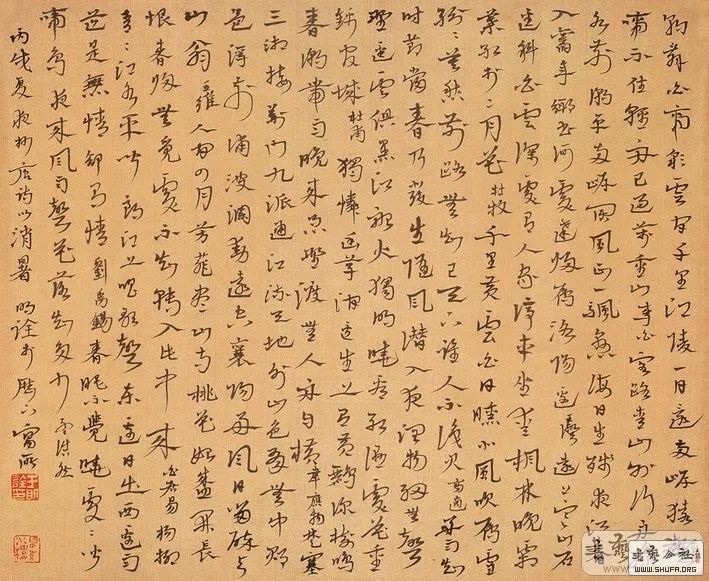 朝辭白帝彩雲間千里江陵一日還兩岸猿
啼不住輕舟已過萬重山李白客路青山外行舟
水前潮平兩岸闊風正一帆懸海日生殘夜江春
入舊年鄉書何處達歸雁洛陽邊遠上寒山石
徑斜白雲深處有人家停車坐愛楓林晚霜
葉紅於二月花杜牧千里黃雲白日曛北風吹雁雪
紛紛莫愁前路無知己天下誰人不識高適好雨知
時節當春乃發生隨風潛入夜潤物細無聲
野徑雲俱黑江船火獨明曉看紅濕處花重
錦官城杜甫獨憐幽草澗邊生上有黃鸝深樹鳴
春潮帶雨晚來急野渡無人舟自橫韋應物楚塞
三湘接荊門九派通江流天地外山色有無中郡
邑浮前浦波瀾動遠空襄陽好風日留醉與
山翁王維人間四月芳菲盡山寺桃花始盛開長
恨春歸無覓處不知轉入此中來白居易楊柳
青青江水平聞郎江上唱歌聲東邊日出西邊雨
道是無情卻有情劉禹錫春眠不覺曉處處聞
啼鳥夜來風雨聲花落知多少孟浩然
丙戌夏夜抄唐詩以消暑明詮於歷下寓所
WWW.SHUFA.ORG